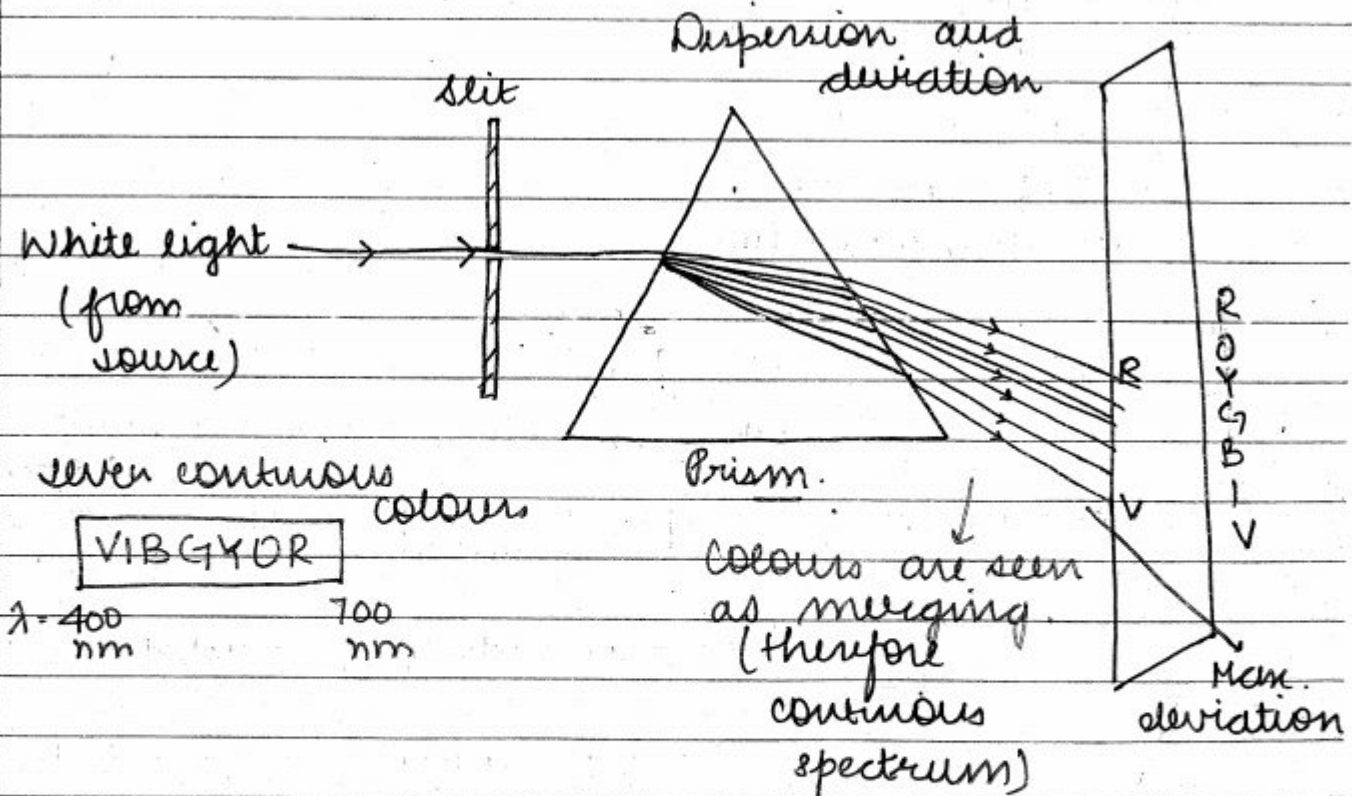 Dispersion and
deviation
slit
White light
(from
source)
R
V
R
O
Y
G
B
I
V
seven continuous
colours
VIBGYOR
λ = 400
nm
700
nm
Prism.
Colours are seen
as merging.
(therefore
continuous
spectrum)
Max.
deviation